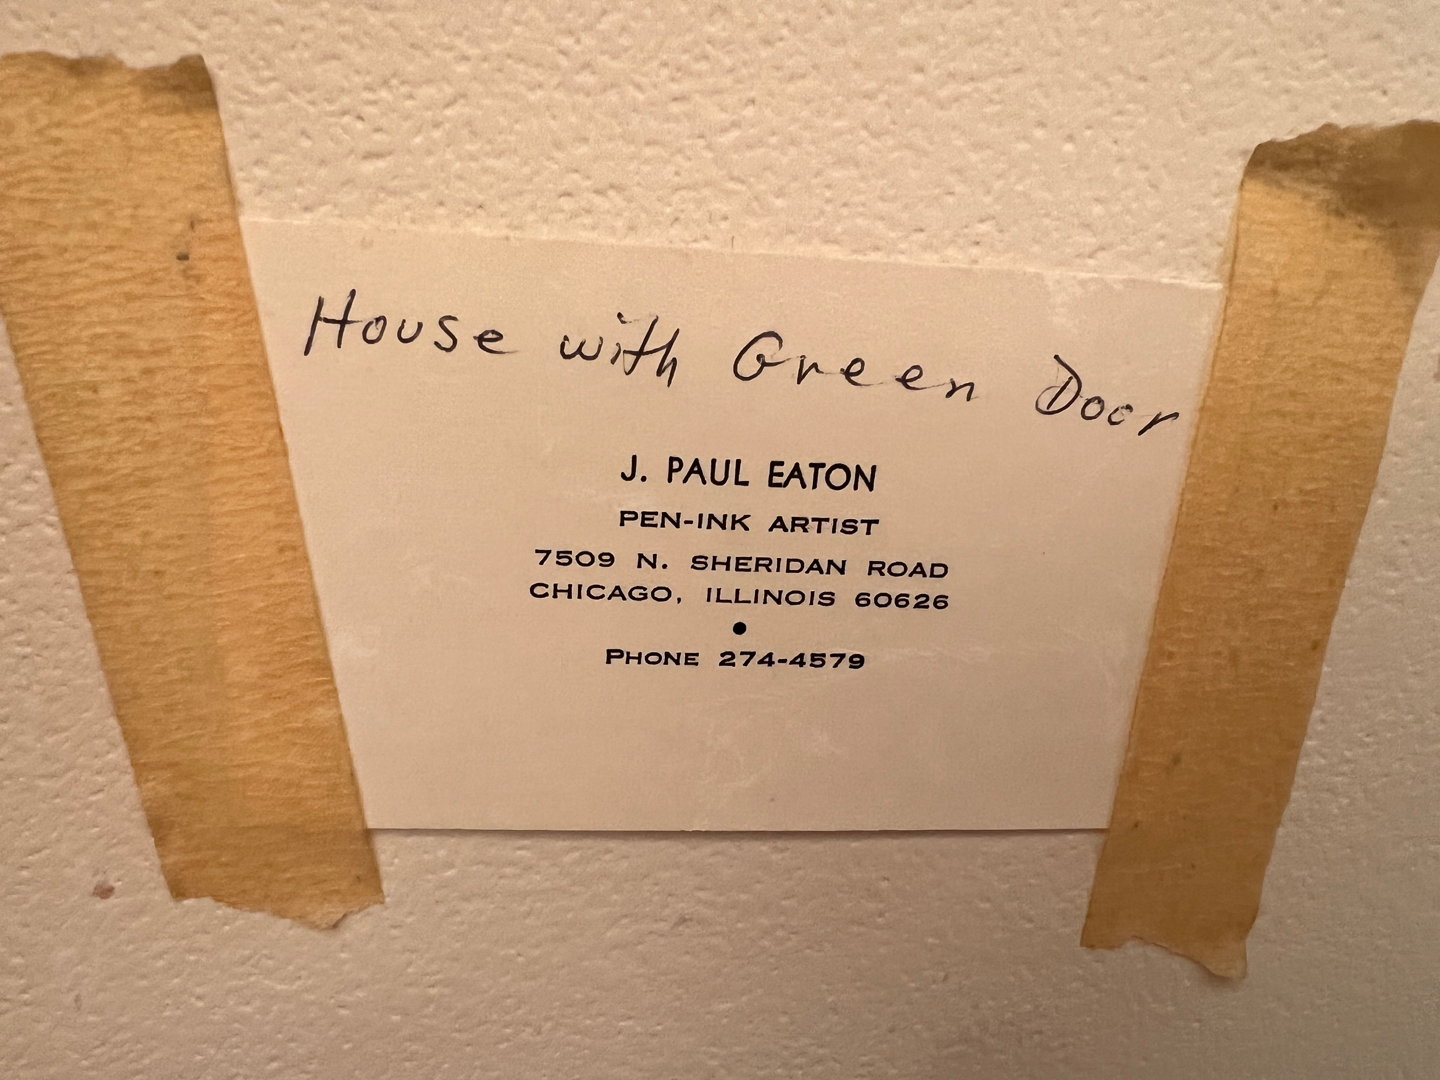 House with Green Door
J. PAUL EATON
PEN-INK ARTIST
7509 N. SHERIDAN ROAD
CHICAGO, ILLINOIS 60626
•
PHONE 274-4579